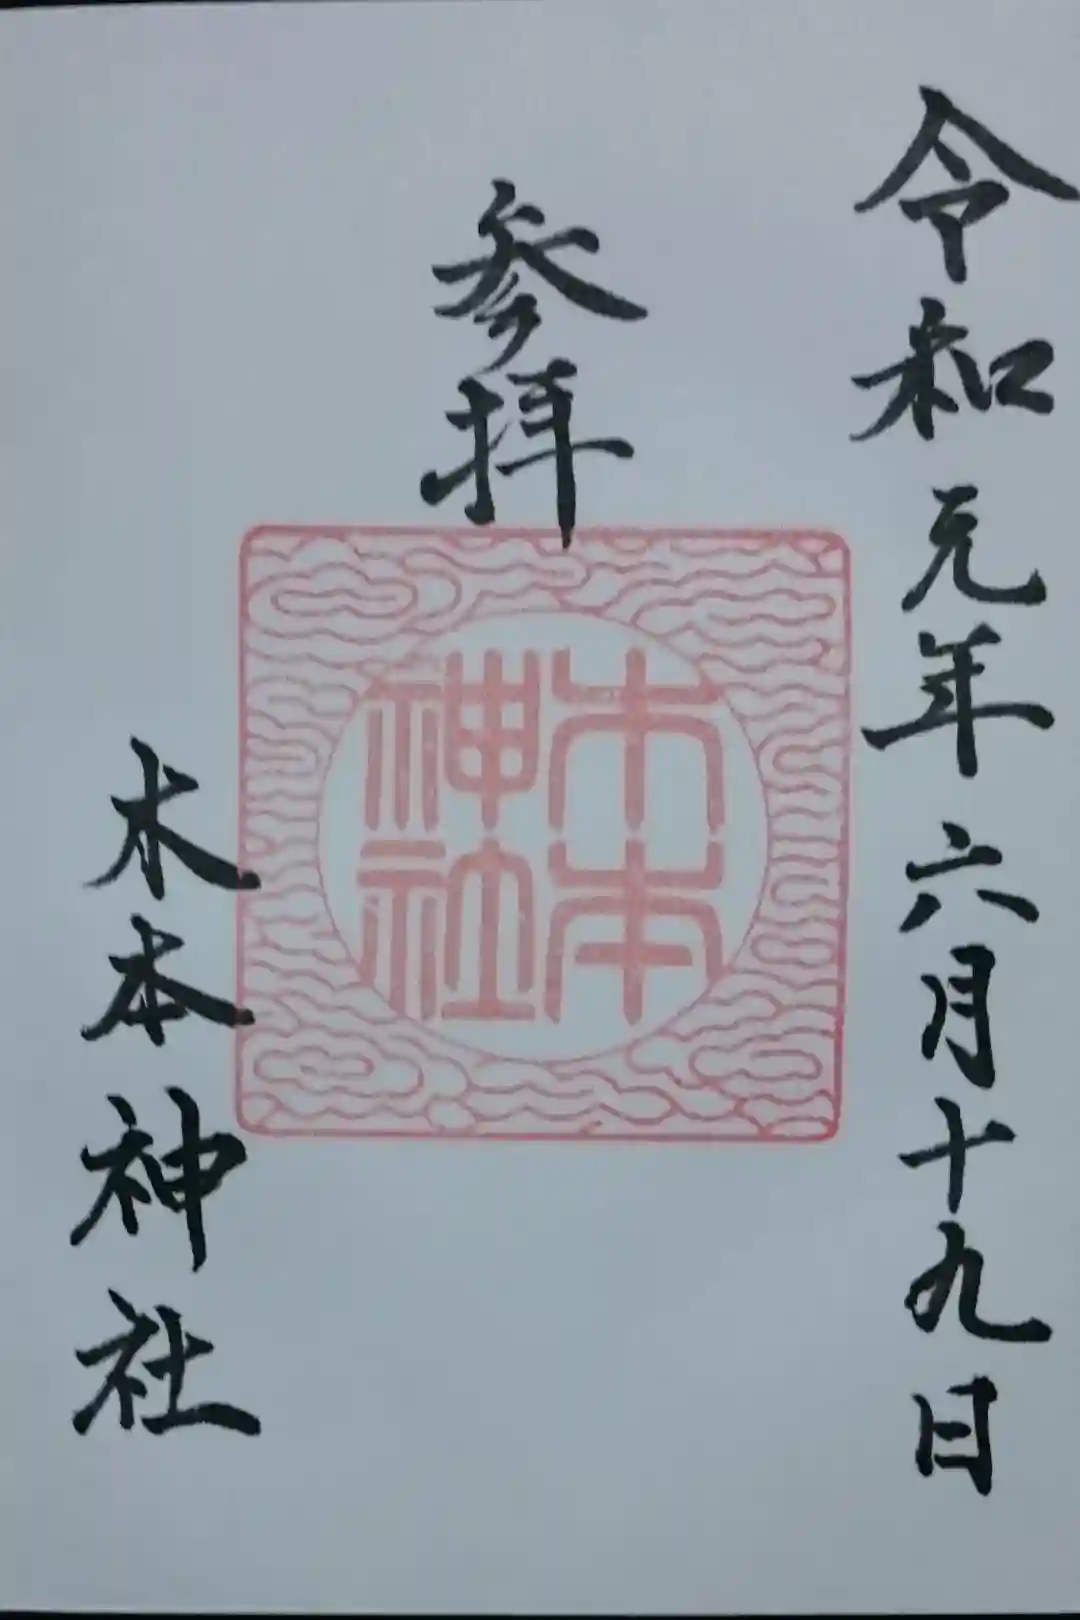 令和元年六月十九日
参拝
木本
神社
木本神社